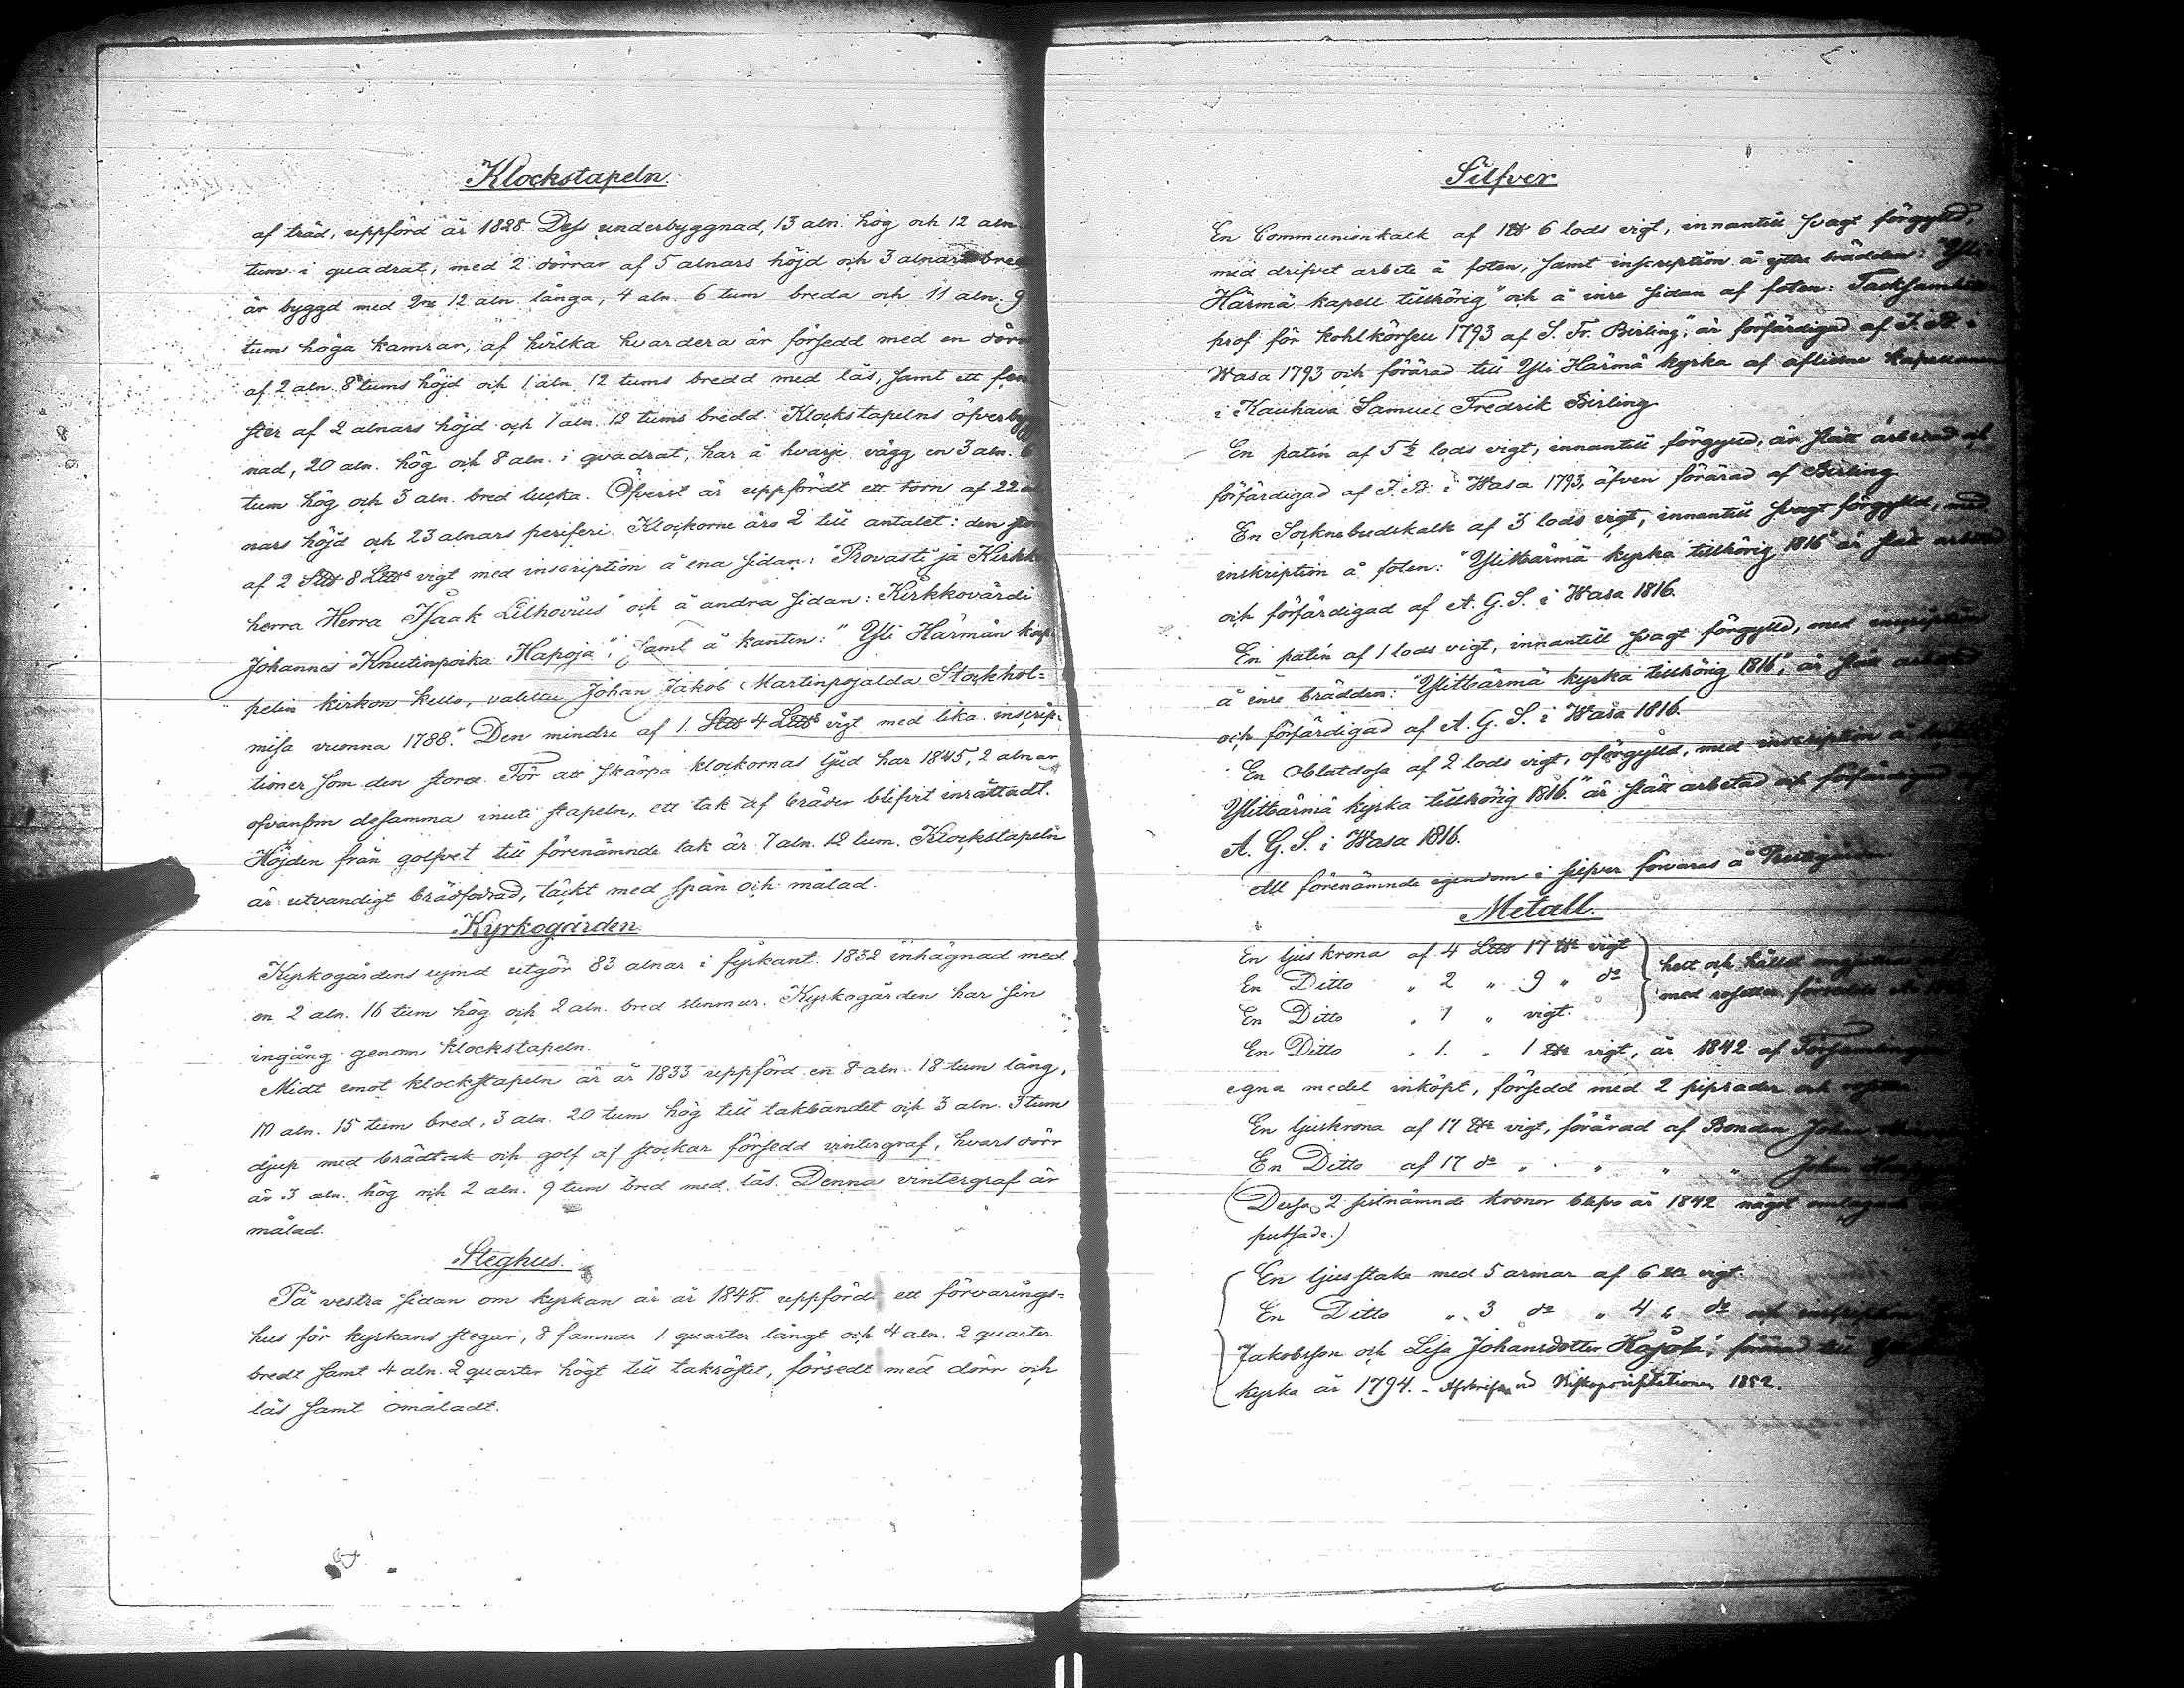 Klockstapeln.
af träd, uppförd år 1828. Dess underbyggnad, 13 aln. hög och 12 aln.
tum i quadrat, med 2 dörrar af 5 alnars höjd och 3 alnars
är byggd med 2ne 12 aln. långa, 4 aln. 6 tum breda och 11 aln. 9
tum höga kamrar, af hvilka hvardera är försedd med en
af 2 aln. 8 tums höjd och 1 aln. 12 tums bredd med lås, samt ett fen
ster af 2 alnars höjd och 1 aln. 12 tums bredd. Klockstapelns öfverbygg
nad, 20 aln. hög och 8 aln. i quadrat, har å hvarje vägg en 3 aln. 6
tum hög och 3 aln. bred lucka. Öfverst är uppfördt ett torn af 22 al
nars höjd och 23 alnars periferi. Klockorne äro 2 till antalet: den
af 2 S℔ 8 L℔s vigt med inscription å ena sidan: "Rovasti ja Kirkko
herra Herra Isaak Lilhovius" och å andra sidan: Kirkkovärdi
Johannes Knutinpoika Hapoja"; samt å kanten: "Yli Härmän kap
pelin kirkon kello, valettu Johan Jakob Martinpojalda Stockhol=
misa vuonna 1788." Den mindre af 1. S℔ 4 L℔s vigt med lika inscrip-
tioner som den stora. För att skärpa klockornas ljud har 1845, 2 alnar
ofvanom desamma inuti stapeln, ett tak af bräder blifvit inrättadt.
Höjden från golfvet till förenämnde tak är 7 aln. 12 tum. Klockstapeln
är utvändigt brädfodrad, täckt med spån och målad.
Kyrkogården
Kyrkogårdens rymd utgör 83 alnar i fyrkant. 1832 inhägnad med
en 2 aln. 16 tum hög och 2 aln. bred stenmur. Kyrkogården har sin
ingång genom klockstapeln.
Midt emot klockstapeln är år 1833 uppförd en 8 aln. 18 tum lång,
10 aln. 15 tum bred, 3 aln. 20 tum hög till takbandet och 3 aln. 3 tum
djup med brädtak och golf af stockar försedd vintergraf, hvars dörr
är 3 aln. hög och 2 aln. 9 tum bred med lås. Denna vintergraf är
målad.
Steghus.
På vestra sidan om kyrkan är år 1848 uppfördt ett förvarings=
hus för kyrkans stegar, 8 famnar 1 quarter långt och 4 aln. 2 quarter
bredt samt 4 aln. 2 quarter högt till takröstet, försedt med dörr och
lås samt omåladt.
Silfver
En Communionkalk af 1 ℔ 6 lods vigt, innantill svagt förgylld,
med drifvet arbete å foten, samt inscription å yttre brädden: "Yli
Härmä kapell tillhörig" och å inre sidan af foten: Tacksamhets
prof för kohlkörseln 1793 af S. Fr. Birling", är förfärdigad af J. B. i
Wasa 1793 och förärad till Yli Härmä kyrka af aflidne kapellanen
i Kauhava Samuel Fredrik Birling
En patén af 5 ½ lods vigt, innantill förgylld, är slätt arbetad och
förfärdigad af J. B. i Wasa 1793, äfven förärad af Birling
En Socknebudskalk af 3 lods vigt, innantill svagt förgylld, med
inskription å foten: "Ylihärmä kyrka tillhörig 1816" är slätt arbetad
och förfärdigad af A. G. S. i Wasa 1816.
En patén af 1 lods vigt, innantill svagt förgylld, med inscription
å inre brädden: "Ylihärmä kyrka tillhörig 1816", är slätt arbetad
och förfärdigad af A. G. S. i Wasa 1816.
En Oblatdosa af 2 lods vigt, oförgylld, med inscription å
Ylihärmä kyrka tillhörig 1816." är slätt arbetad och förfärdigad af
A. G. S. i Wasa 1816.
All förenämnde egendom i silfver förvaras å Prestgården
Metall.
En ljuskrona af 4 L℔ 17 ℔r vigt
En Ditto " 2 " 9 " do
En Ditto " 1 " vigt.
helt och hållet
med
En Ditto " 1. " 1 ℔r vigt, är 1842 af Församlingens
egna medel inköpt, försedd med 2 piprader och
En ljuskrona af 17 ℔r vigt, förärad af Bonden Johan
En Ditto af 17 do " " " " Johan
(Dessa 2 sistnämnde kronor blefvo år 1842 något omlagade
putsade.)
En ljusstake med 5 armar af 6 ℔r vigt.
En Ditto " 3 do " 4 " do och inscription
Jakobsson och Lisa Johansdotter Hapoja", förärad till
kyrka år 1794. - Afskrifven vid Biskopsvisitationen 1892.